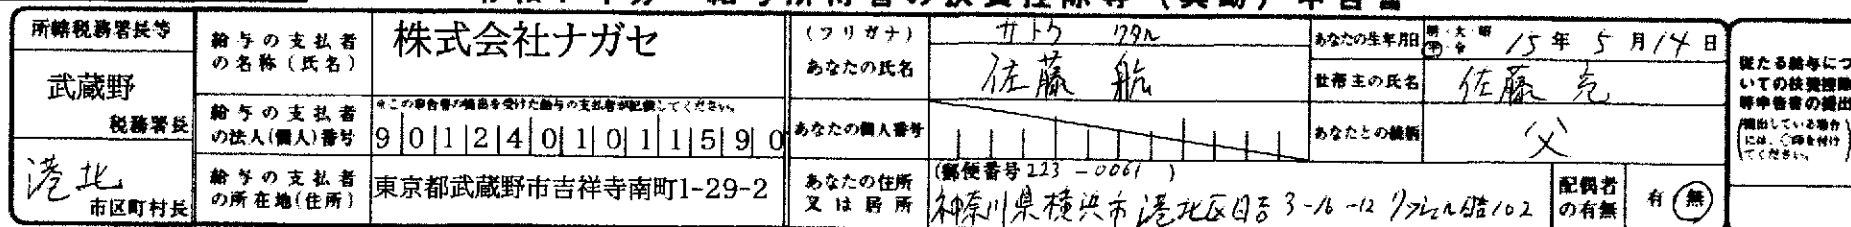 給与所得者の扶養控除等(異動)申告書
所轄税務署長等
武蔵野
税務署長
港北
市区町村長
給与の支払者の名称(氏名)
株式会社ナガセ
給与の支払者の法人(個人)番号
※この申告書の提出を受けた給与の支払者が記載してください。
9012401011590
給与の支払者の所在地(住所)
東京都武蔵野市吉祥寺南町1-29-2
(フリガナ)
サトウ ワタル
あなたの氏名
佐藤 航
あなたの個人番号
あなたの住所又は居所
(郵便番号 223 - 0061 )
神奈川県横浜市港北区日吉 3-16-12 日吉102
あなたの生年月日
明・大・昭
平・令
15年 5月14日
世帯主の氏名
佐藤
あなたとの続柄
父
配偶者の有無
有 無
従たる給与につ
いての扶養控除
等申告書の提出
(提出している場合
には、○印を付け
てください。)